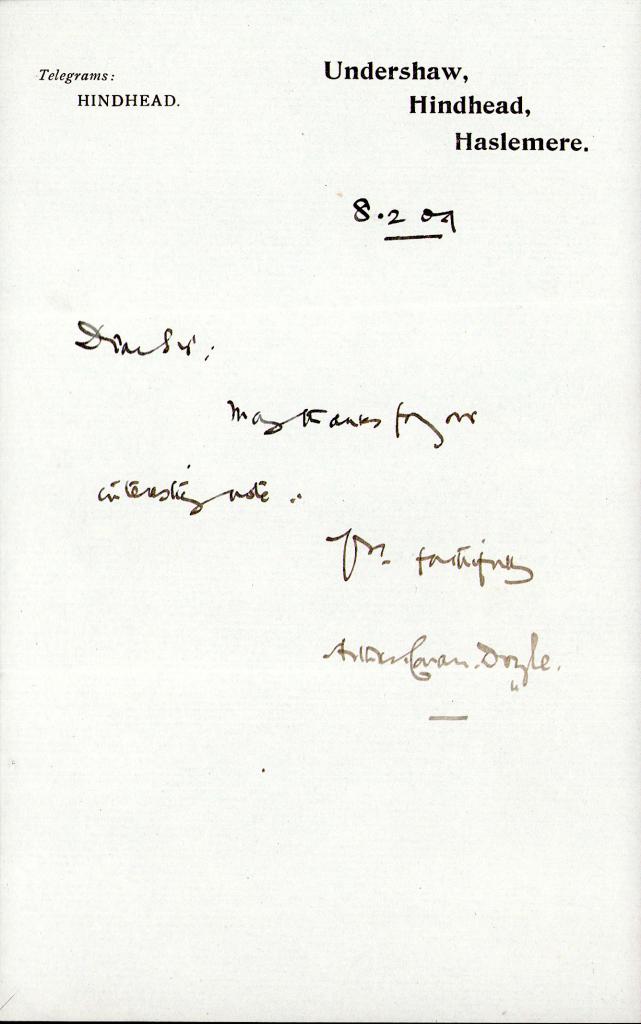 Telegrams:
HINDHEAD.
Undershaw,
Hindhead,
Haslemere.
8.2 09
Dear Sir;
Many thanks for your
interesting note.
Yrs. faithfully
Arthur Conan Doyle.